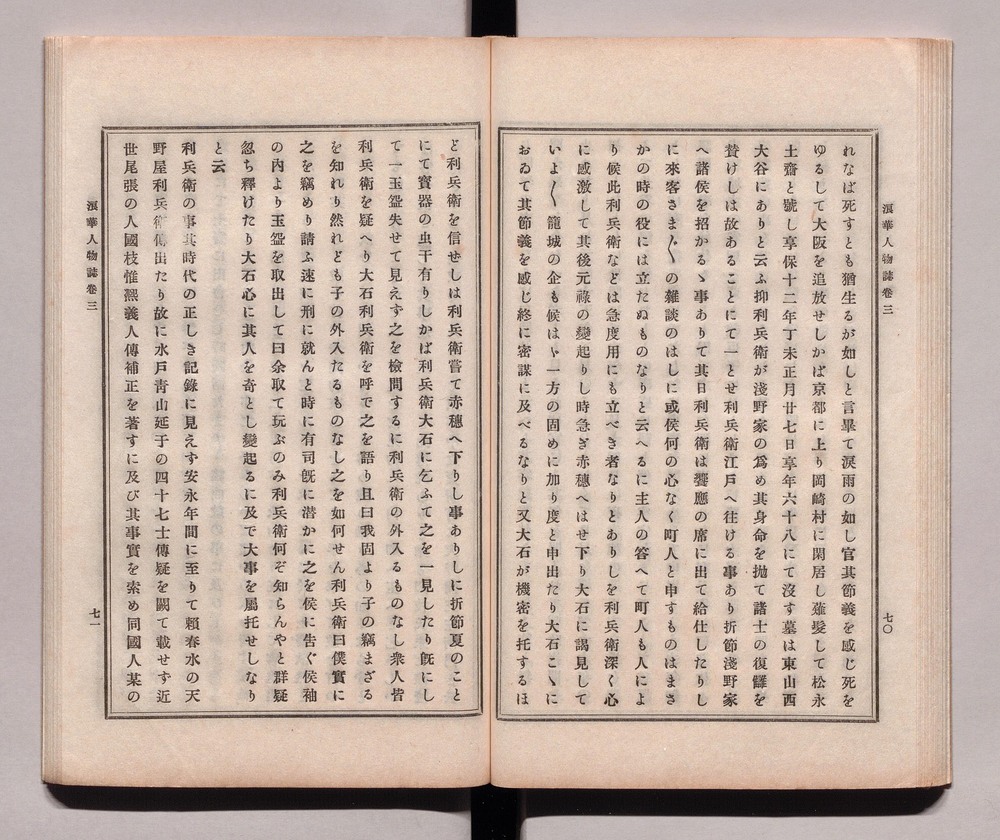 浪華人物誌卷三
七〇
れなば死すとも猶生るが如しと言畢て淚雨の如し官其節義を感じ死を
ゆるして大阪を追放せしかば京都に上り岡崎村に閑居し薙髮して松永
土齋と號し享保十二年丁未正月廿七日享年六十八にて沒す墓は東山西
大谷にありと云ふ抑利兵衛が淺野家の爲め其身命を抛て諸士の復讎を
賛けしは故あることにて一とせ利兵衛江戶へ往ける事あり折節淺野家
へ諸侯を招かるゝ事ありて其日利兵衛は饗應の席に出て給仕したりし
に來客さま〲の雜談のはしに或侯何の心なく町人と申すものはまさ
かの時の役には立たぬものなりと云へるに主人の答へて町人も人によ
り候此利兵衛などは急度用にも立べき者なりとありしを利兵衛深く心
に感激して其後元祿の變起りし時急ぎ赤穗へはせ下り大石に謁見して
いよ〱籠城の企も候はゞ一方の固めに加り度と申出たり大石こゝに
おゐて其節義を感じ終に密謀に及べるなりと又大石が機密を托するほ
ど利兵衛を信せしは利兵衛嘗て赤穗へ下りし事ありしに折節夏のこと
にて寶器の虫干有りしかば利兵衛大石に乞ふて之を一見したり旣にし
て一玉盌失せて見えず之を檢問するに利兵衛の外入るものなし衆人皆
利兵衛を疑へり大石利兵衛を呼で之を語り且曰我固より子の竊まざる
を知れり然れども子の外入たるものなし之を如何せん利兵衛曰僕實に
之を竊めり請ふ速に刑に就んと時に有司旣に潛かに之を侯に告ぐ侯袖
の內より玉盌を取出して曰余取て玩ぶのみ利兵衛何ぞ知らんやと群疑
忽ち釋けたり大石心に其人を奇とし變起るに及で大事を屬托せしなり
と云
利兵衛の事其時代の正しき記錄に見えず安永年間に至りて賴春水の天
野屋利兵衛傳出たり故に水戶靑山延于の四十七士傳疑を闕て載せず近
世尾張の人國枝惟凞義人傳補正を著すに及び其事實を索め同國人某の
浪華人物誌卷三
七一